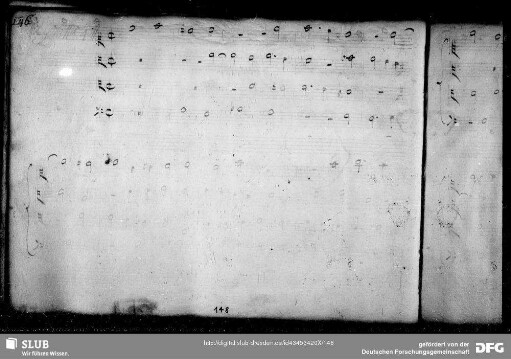 146
148
SLUB
Wir führen Wissen.
http://digital.slub-dresden.de/id43493420X/148
gefördert von der
Deutschen Forschungsgemeinschaft
DFG